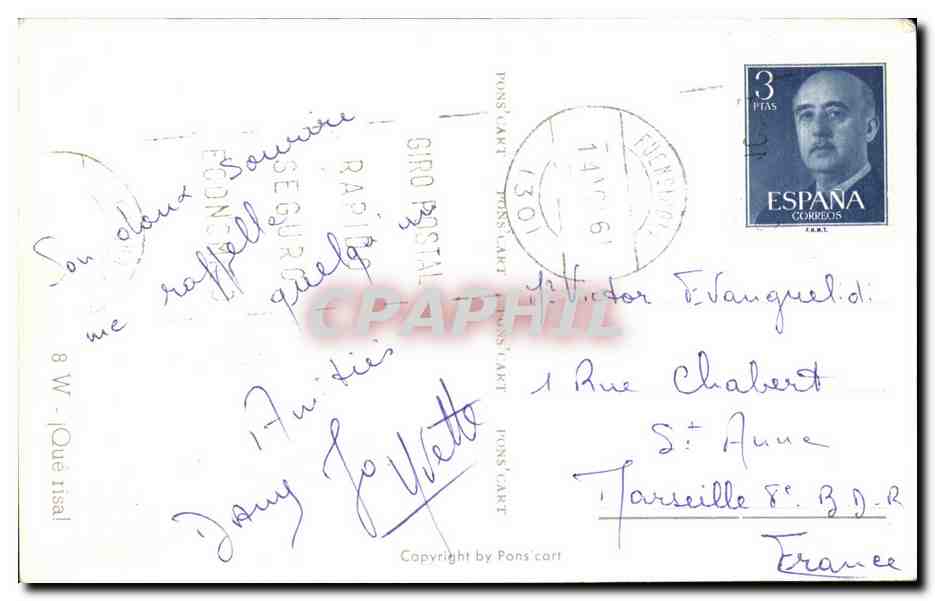 Son doux sourire
me rappelle
quelqu'un
Amitiés
Dany Jo Yvette
8 W - ¡Qué risa!
Copyright by Pons' cart
PONS'CART
PONS'CART
PONS'CART
PONS'CART
GIRO POSTAL
RAPIDO
SEGURO
FUENGIROLA
3
PTAS
ESPAÑA
CORREOS
F.N.M.T.
Mr Victor Evanguelidi
1 Rue Chabert
St Anne
Marseille 8e B D-R
France
CPAPHIL